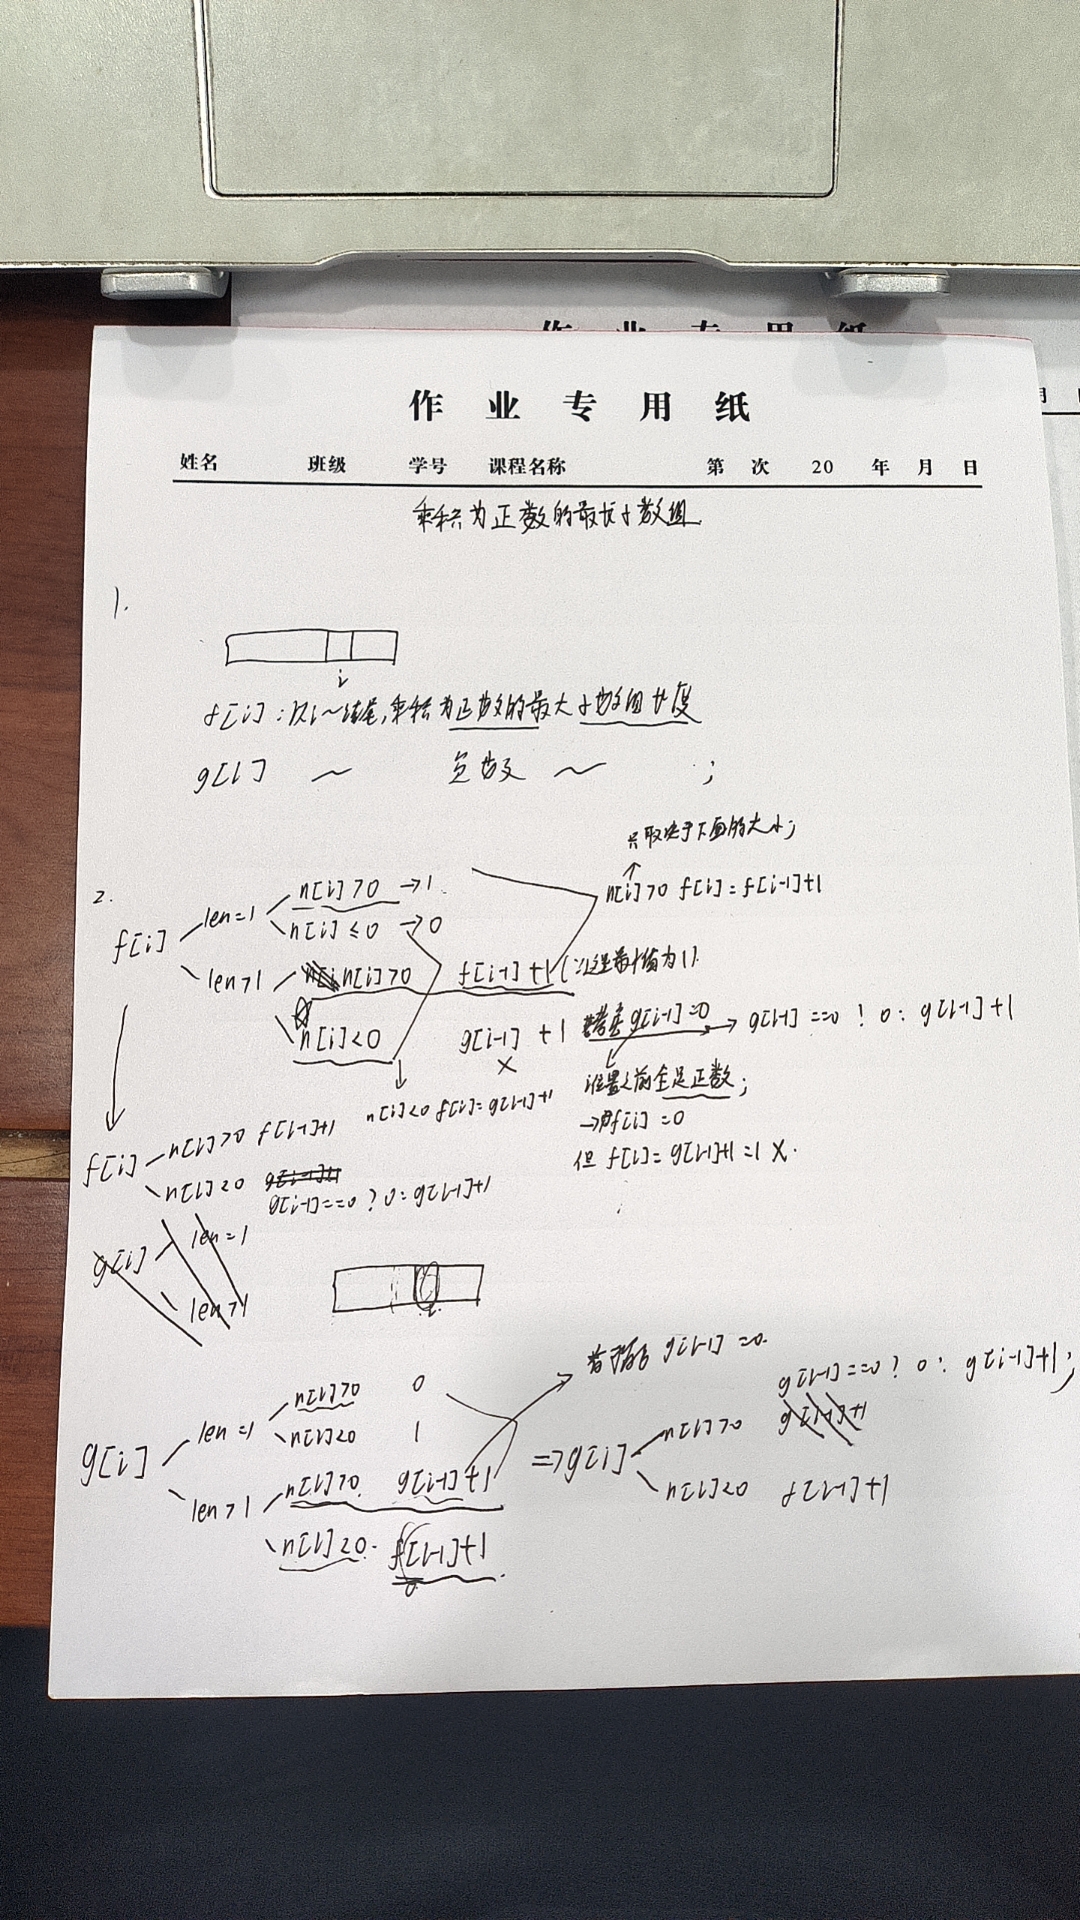 作业专用纸
月
作业专用纸
姓名 班级 学号 课程名称 第 次 20 年 月 日
乘积为正数的最长子数组
1.
i
f[i]:以i~结尾,乘积为正数的最大子数组长度
g[i] ~ 负数 ~ ;
只取决于下面的大小;
2.
f[i] len=1 n[i]>0 →1
n[i]≤0 →0
n[i]>0 f[i]=f[i-1]+1
len>1 n[i]>0 f[i-1]+1 (这里最小值为1).
n[i]<0 g[i-1]+1 g[i-1]=0 → g[i-1]==0?0:g[i-1]+1
×
i位置之前全是正数;
n[i]<0 f[i]=g[i-1]+1
→ f[i]=0
但 f[i]=g[i-1]+1=1 ×.
f[i] n[i]>0 f[i-1]+1
n[i]<0 g[i-1]+1
g[i-1]==0?0:g[i-1]+1
g[i] len=1
len>1
g[i-1]=0.
g[i] len=1 n[i]>0 0
n[i]<0 1
len>1 n[i]>0 g[i-1]+1
n[i]<0. f[i-1]+1
g[i-1]==0?0:g[i-1]+1;
=>g[i] n[i]>0 g[i-1]+1
n[i]<0 f[i-1]+1